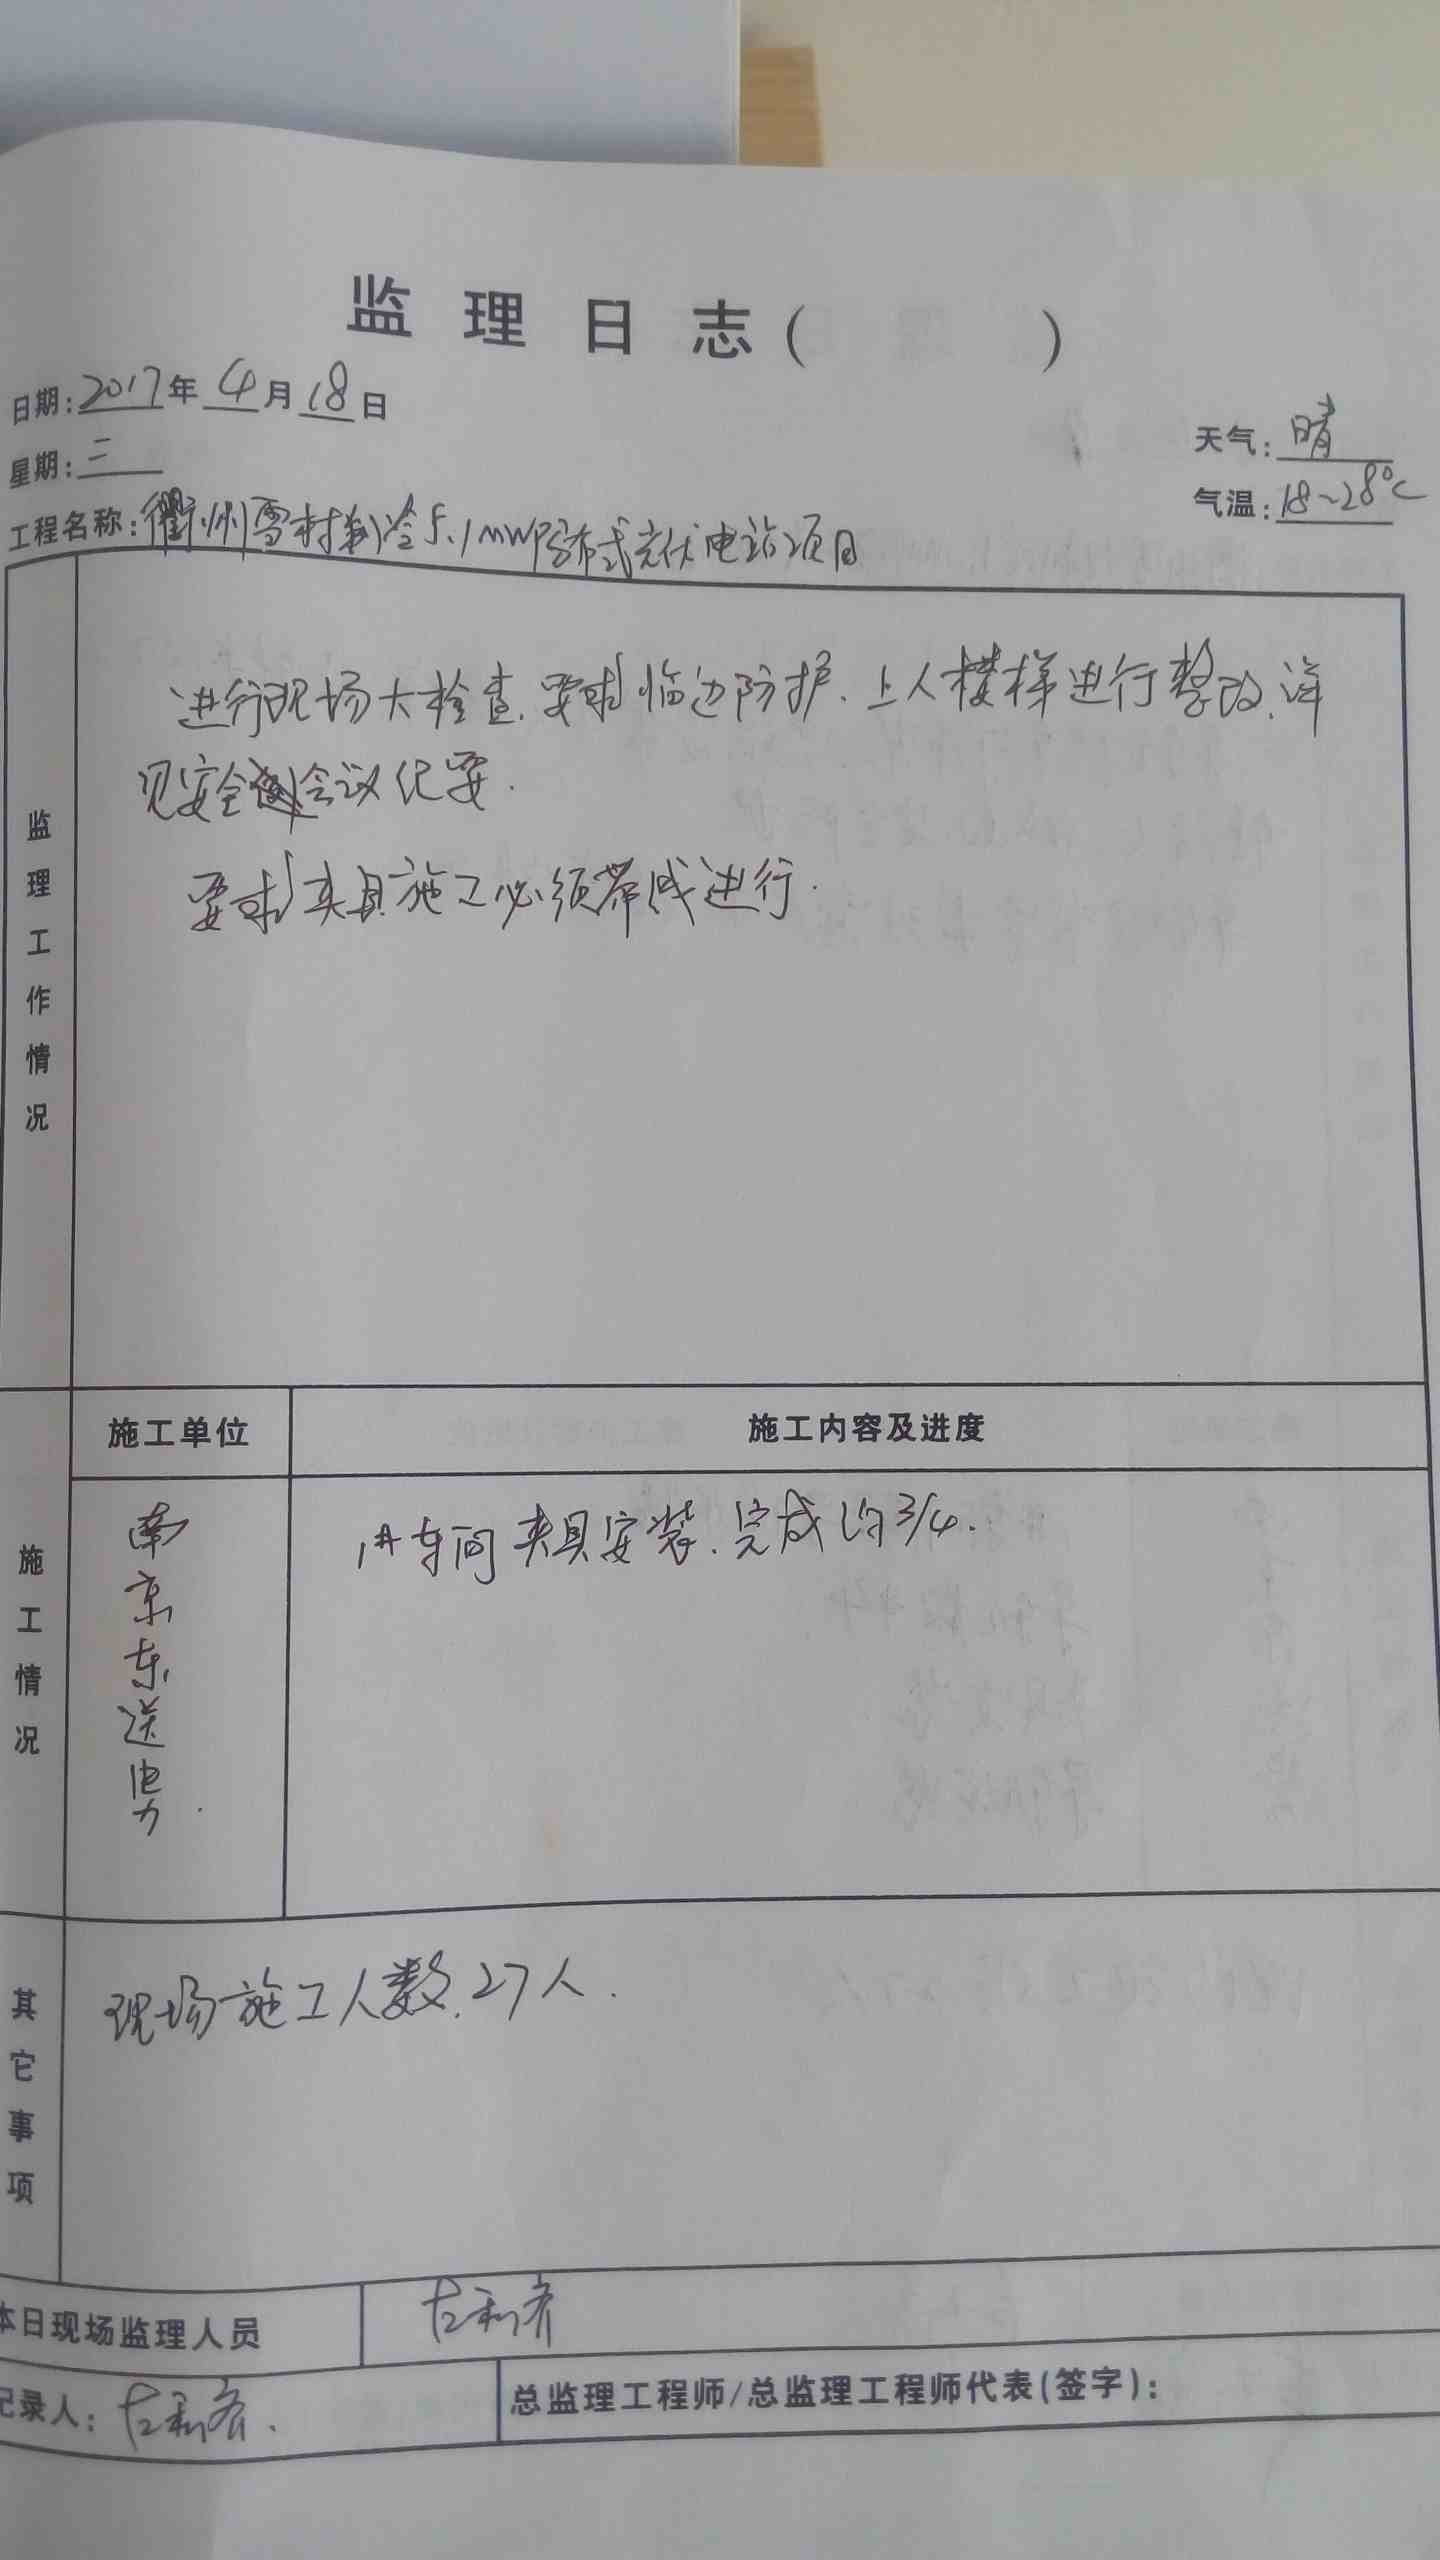 监理日志( )
日期:2017年4月18日
星期:二
天气:晴
气温:18~28℃
工程名称:衢州雪村制冷5.1MWP分布式光伏电站项目
监理工作情况
进行现场大检查,要求临边防护、上人楼梯进行整改,详
见安全会议纪要.
要求夹具施工必须带线进行.
施工情况
施工单位
施工内容及进度
南京东送电力.
1#车间夹具安装,完成约3/4.
其它事项
现场施工人数,27人.
本日现场监理人员
左利齐
记录人:左利齐.
总监理工程师/总监理工程师代表(签字):